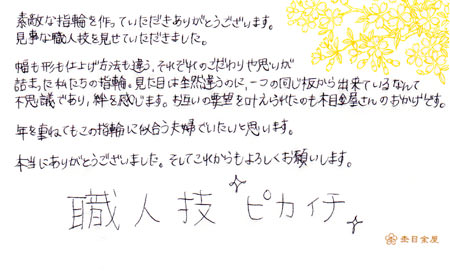 素敵な指輪を作っていただきありがとうございます。
見事な職人技を見せていただきました。
幅も形も仕上げ方法も違う、それぞれのこだわりや思いが
詰まった私たちの指輪。見た目は全然違うのに、一つの同じ板から出来ているなんて
不思議であり、絆を感じます。お互いの要望を叶えられたのも木目金屋さんのおかげです。
年を重ねてもこの指輪に似合う夫婦でいたいと思います。
本当にありがとうございました。そしてこれからもよろしくお願いします。
職人技ピカイチ
杢目金屋